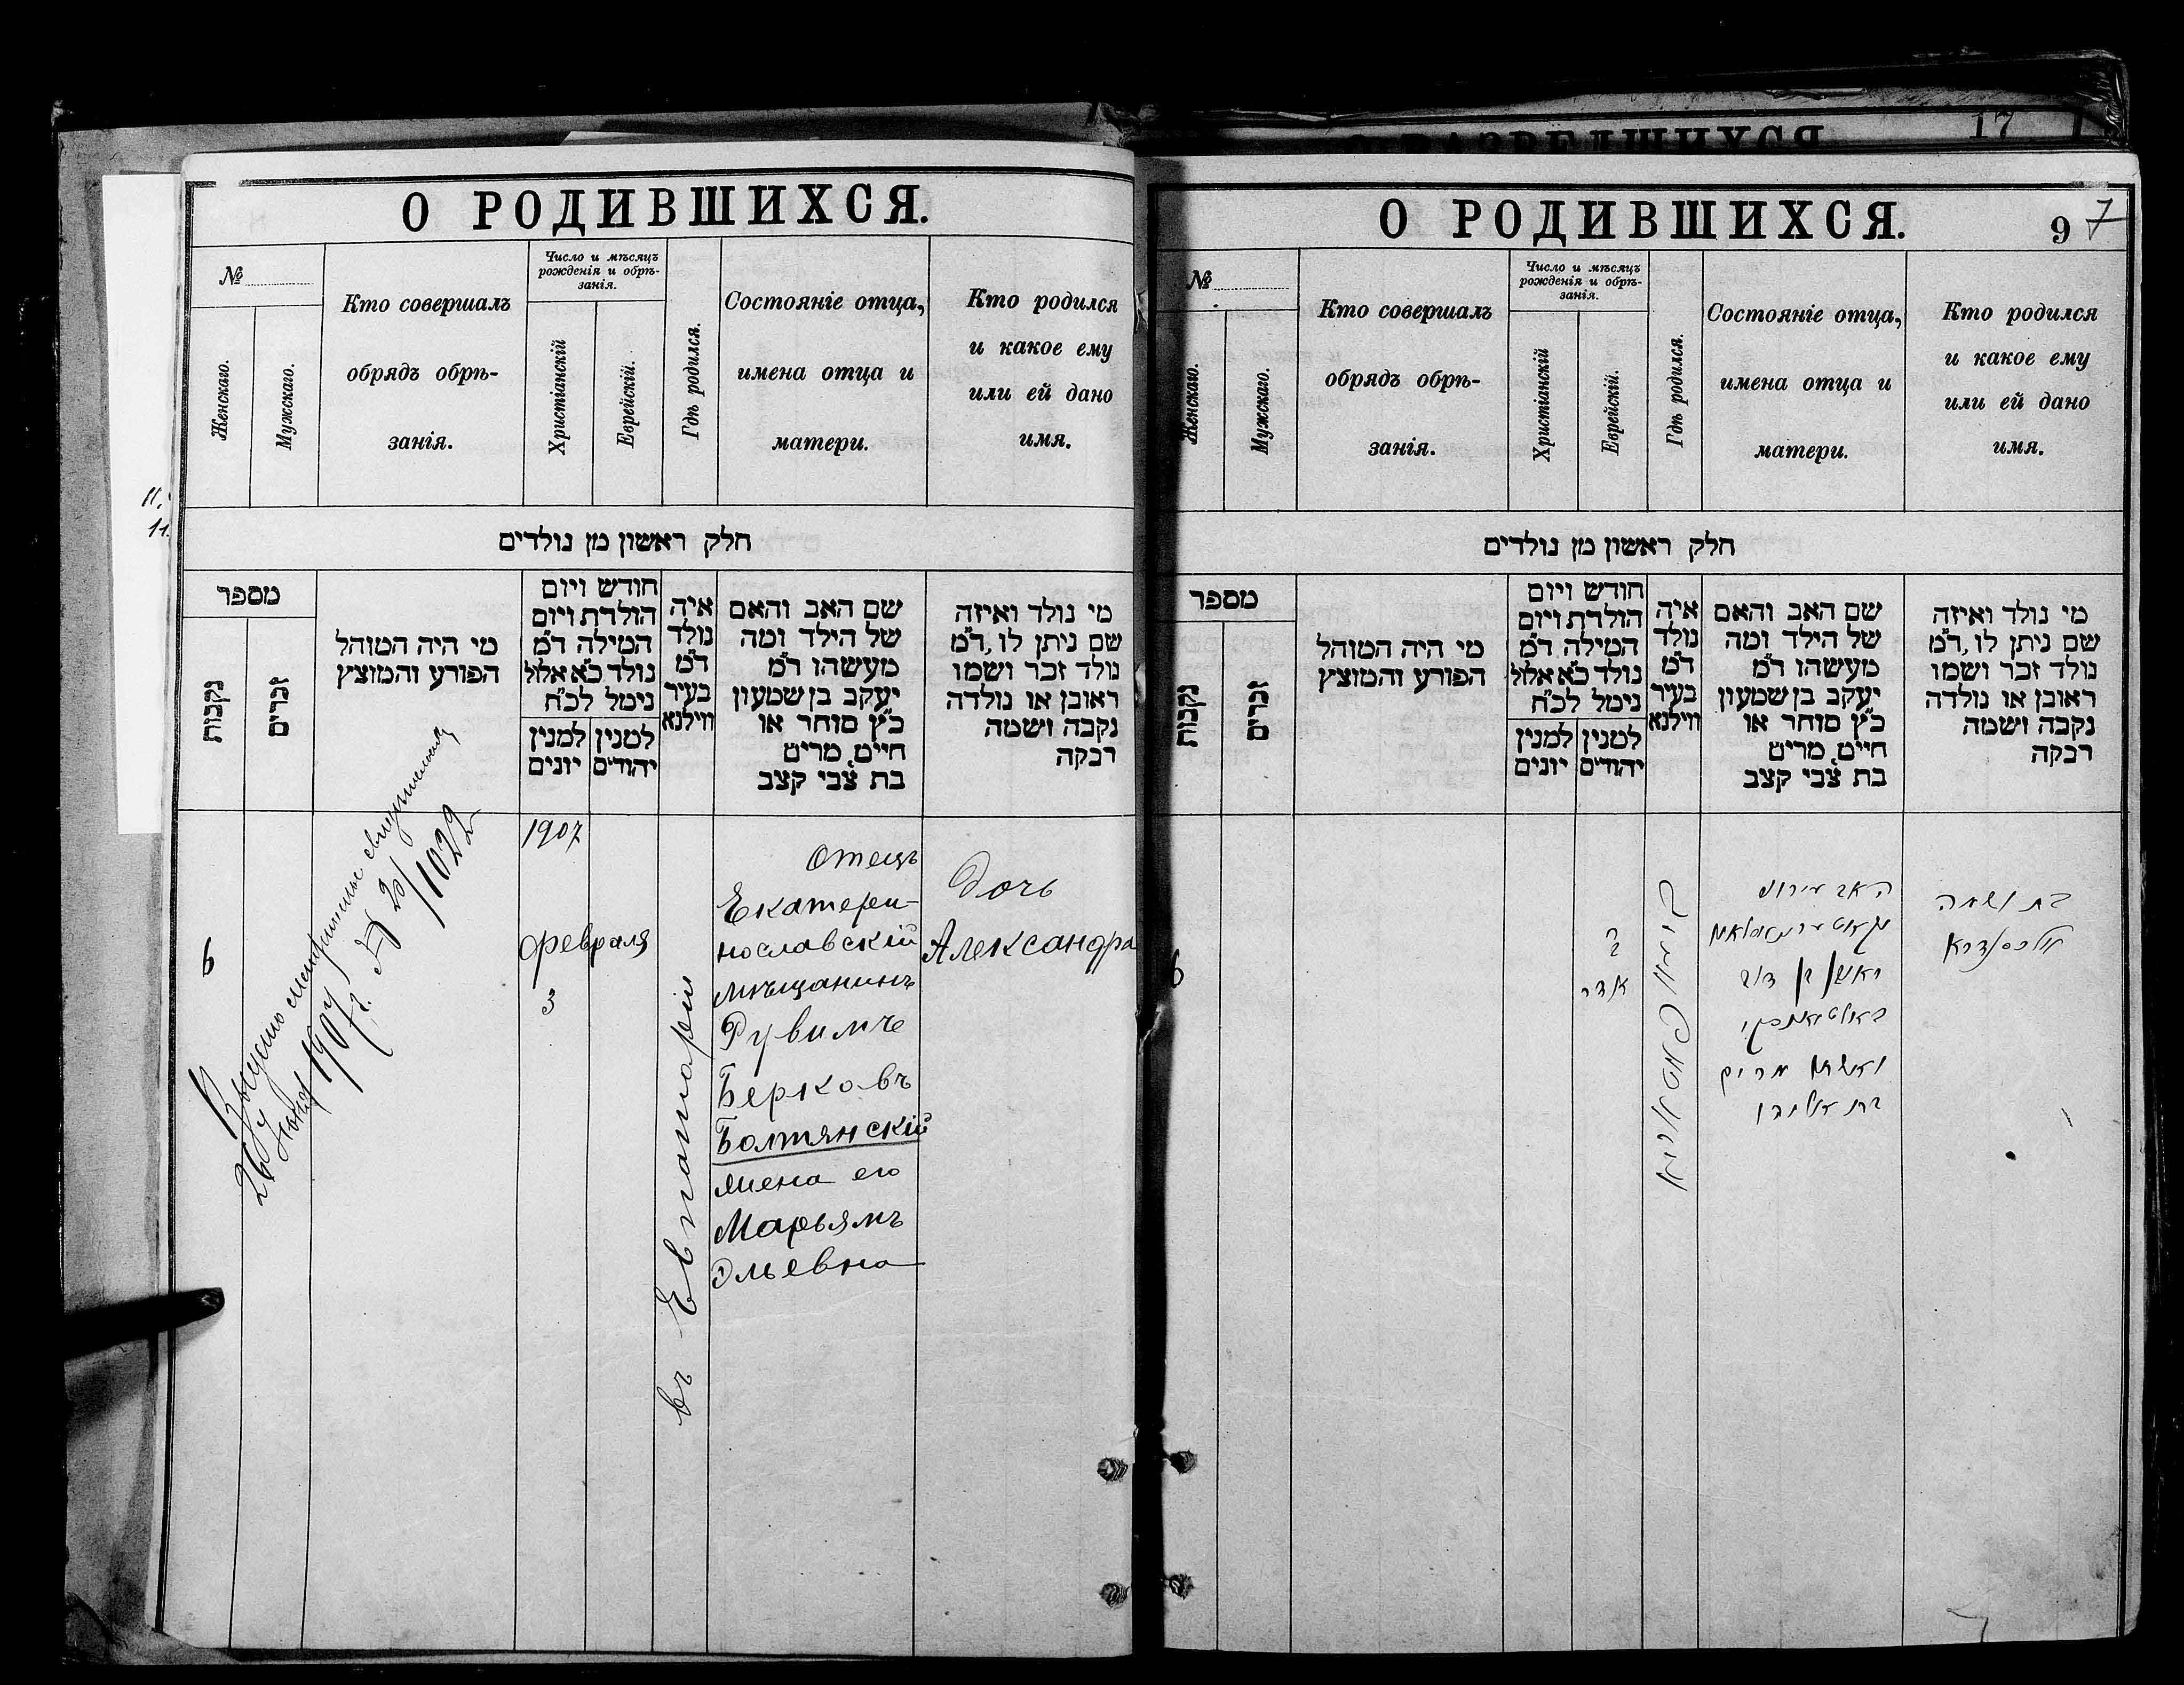 17
О РОДИВШИХСЯ.
№
Женскаго.
Мужскаго.
Кто совершалъ
обрядъ обрѣ-
занія.
Число и мѣсяцъ
рожденія и обрѣ-
занія.
Христіанскій
Еврейскій.
Гдѣ родился.
Состояніе отца,
имена отца и
матери.
Кто родился
и какое ему
или ей дано
имя.
חלק ראשון מן נולדים
מספר
נקבות
זכרים
מי היה המוהל
הפורע והמוצץ
חודש ויום
הולדת ויום
המילה ד"מ
נולד כ"א אלול
נימל לכ"ח
למנין יונים
למנין יהודים
איה
נולד
ד"מ
בעיר
ווילנא
שם האב והאם
של הילד ומה
מעשהו ד"מ
יעקב בן שמעון
כ"ץ סוחר או
חיים, מרים
בת צבי קצב
מי נולד ואיזה
שם ניתן לו, ד"מ
נולד זכר ושמו
ראובן או נולדה
נקבה ושמה
רבקה
6
26 1907 г. № 20/1022
1907
февраля
3
въ Евпаторіи
Отецъ
Екатери-
нославскій
мѣщанинъ
Рувимъ
Берковъ
Болтянскій
жена его
Марьямъ
Эльевна
Дочь
Александра
О РОДИВШИХСЯ.
9 7
№
Женскаго.
Мужскаго.
Кто совершалъ
обрядъ обрѣ-
занія.
Число и мѣсяцъ
рожденія и обрѣ-
занія.
Христіанскій
Еврейскій.
Гдѣ родился.
Состояніе отца,
имена отца и
матери.
Кто родился
и какое ему
или ей дано
имя.
חלק ראשון מן נולדים
מספר
נקבות
זכרים
מי היה המוהל
הפורע והמוצץ
חודש ויום
הולדת ויום
המילה ד"מ
נולד כ"א אלול
נימל לכ"ח
למנין יונים
למנין יהודים
איה
נולד
ד"מ
בעיר
ווילנא
שם האב והאם
של הילד ומה
מעשהו ד"מ
יעקב בן שמעון
כ"ץ סוחר או
חיים, מרים
בת צבי קצב
מי נולד ואיזה
שם ניתן לו, ד"מ
נולד זכר ושמו
ראובן או נולדה
נקבה ושמה
רבקה
6
אדר
האב
ראובן בן דוב
באלטיאנסקי
ואשתו מרים
בת אליהו
בת ושמה
אלכסנדרא